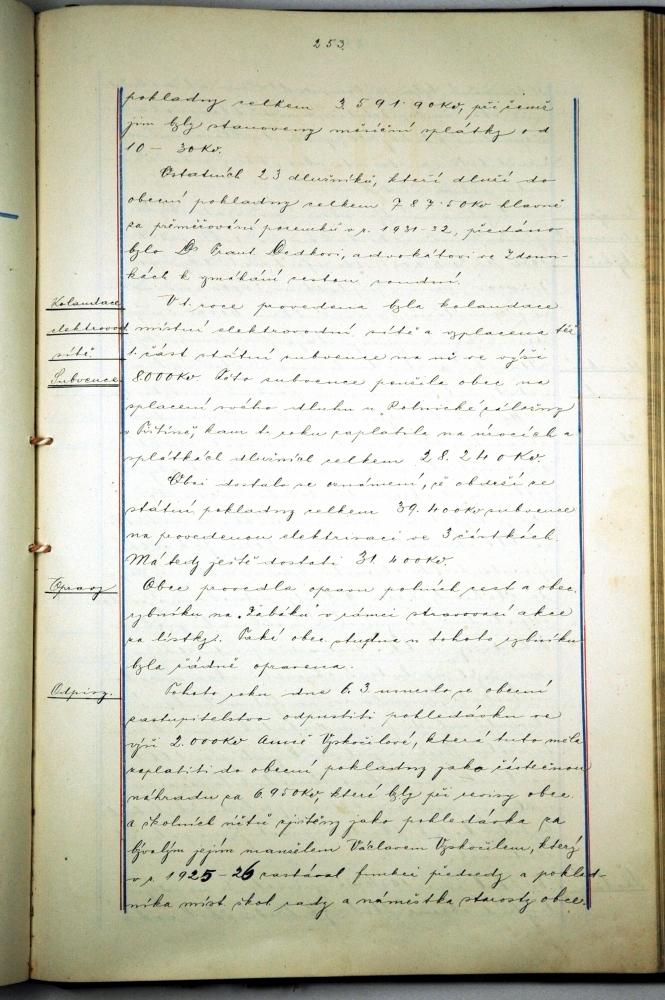 253.
pokladny celkem 3.591·90Kč, při čemž
jim byly stanoveny měsíční splátky od
10 – 30Kč.
Ostatních 23 dlužníků, kteří dluží do
obecní pokladny celkem 787·50Kč hlavně
za přeměřování pozemků v r. 1931-32, předáno
bylo Dr Frant. Dedkovi, advokátovi ve Zdoun-
kách k vymáhání cestou soudní.
Kolaudace
elektrovod.
sítě.
Subvence.
V t. roce provedena byla kolaudace
místní elektrovodní sítě a vyplacena též
1. část státní subvence na ni ve výši
8000Kč. Této subvence použila obec na
splacení svého dluhu u Rolnické záložny
kam t. roku zaplatila na úrocích a
splátkách dlužních celkem 28.240Kč.
Obci dostalo se oznámení, že obdrží ze
státní pokladny celkem 39.400Kč subvence
na provedenou elektrisaci ve 3 částkách.
Má tedy ještě dostati 31.400Kč.
Opravy
Obec provedla opravu polních cest a obec.
rybníku na „Žabáku" v rámci stravovací akce
za lístky. Také obec. studna u tohoto rybníku
byla řádně opravena.
Odpisy.
Tohoto roku dne 6. 3 usneslo se obecní
zastupitelstvo odpustiti pohledávku ve
výši 2.000Kč Anně Vyskočilové, která tuto měla
zaplatiti do obecní pokladny jako částečnou
náhradu za 6.950Kč, které byly při revisi obec.
a školních účtů zjištěny jako pohledávka za
bývalým jejím manželem Václavem Vyskočilem, který
v r. 1925-26 zastával funkci předsedy a poklad-
níka míst. škol. rady a náměstka starosty obce.